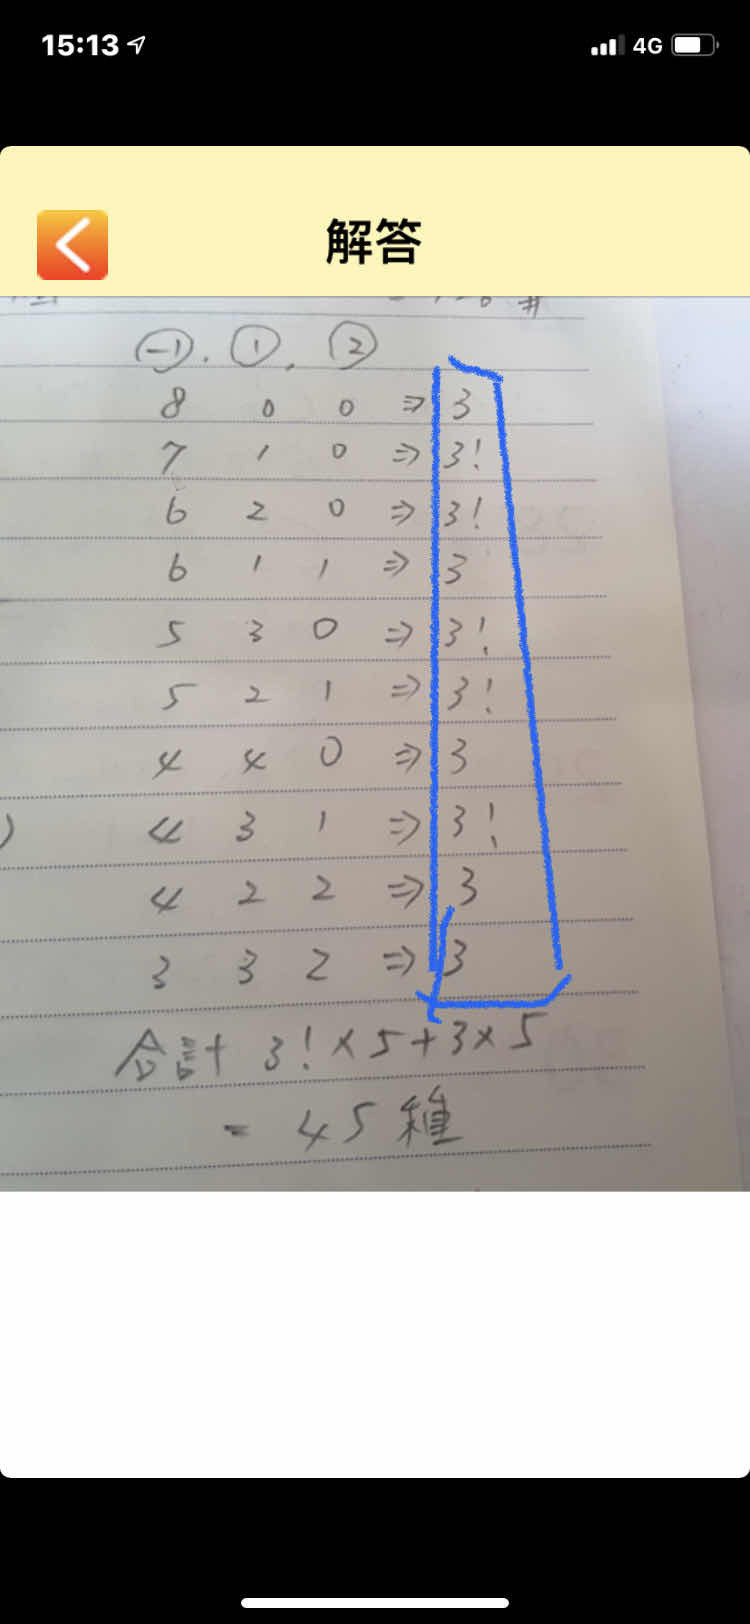 15:13
4G
解答
-1 . 1 , 2
8 0 0 ⇒ 3
7 1 0 ⇒ 3!
6 2 0 ⇒ 3!
6 1 1 ⇒ 3
5 3 0 ⇒ 3!
5 2 1 ⇒ 3!
4 4 0 ⇒ 3
) 4 3 1 ⇒ 3!
4 2 2 ⇒ 3
3 3 2 ⇒ 3
合計 3! × 5 + 3 × 5
= 45 種